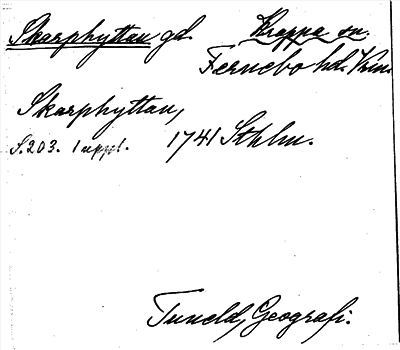 Skarphyttan gd. Kroppa sn.
Fernebo hd. Vrm.
Skarphyttan,
S. 203. 1 uppl. 1741 Sthlm.
Tuneld, Geografi.